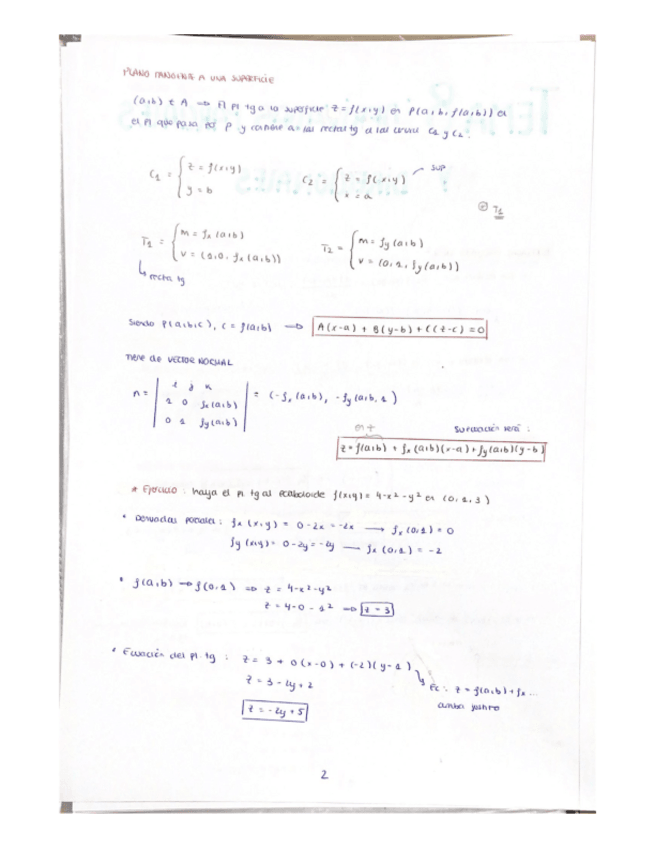 PLANO TANGENTE A UNA SUPERFICIE
(a,b) ∈ A ⇒ El pl tg a la superficie z = f(x,y) en P(a,b, f(a,b)) es
el pl que pasa por P y contiene a las rectas tg a las curvas C2 y C2.
C1 = { z = f(x,y) y = b
C2 = { z = f(x,y) x = a
SUP
T1
T1 = { m = fx (a,b) v = (1,0, fx (a,b))
T2 = { m = fy (a,b) v = (0,1, fy (a,b))
recta tg
Siendo P(a,b,c), c = f(a,b) ⇒ A(x-a) + B(y-b) + C(z-c) = 0
Tiene de VECTOR NORMAL
n = | i j k | 1 0 fx(a,b) | 0 1 fy(a,b) | = (-fx (a,b), -fy (a,b, 1)
Su ecuación será :
z = f(a,b) + fx (a,b)(x-a) + fy (a,b)(y-b)
* Ejercicio : halla el pl. tg al paraboloide f(x,y) = 4-x²-y² en (0,1,3)
• Derivadas parciales : fx (x,y) = 0-2x = -2x → fx (0,1) = 0
fy (x,y) = 0-2y = -2y — fx (0,1) = -2
• f(a,b) ⇒ f(0,1) ⇒ z = 4-x²-y²
z = 4-0-1² ⇒ z = 3
• Ecuación del pl. tg : z = 3 + 0(x-0) + (-2)(y-1)
z = 3 - 2y + 2
z = -2y + 5
Ec : z = f(a,b) + fx ...
arriba
2